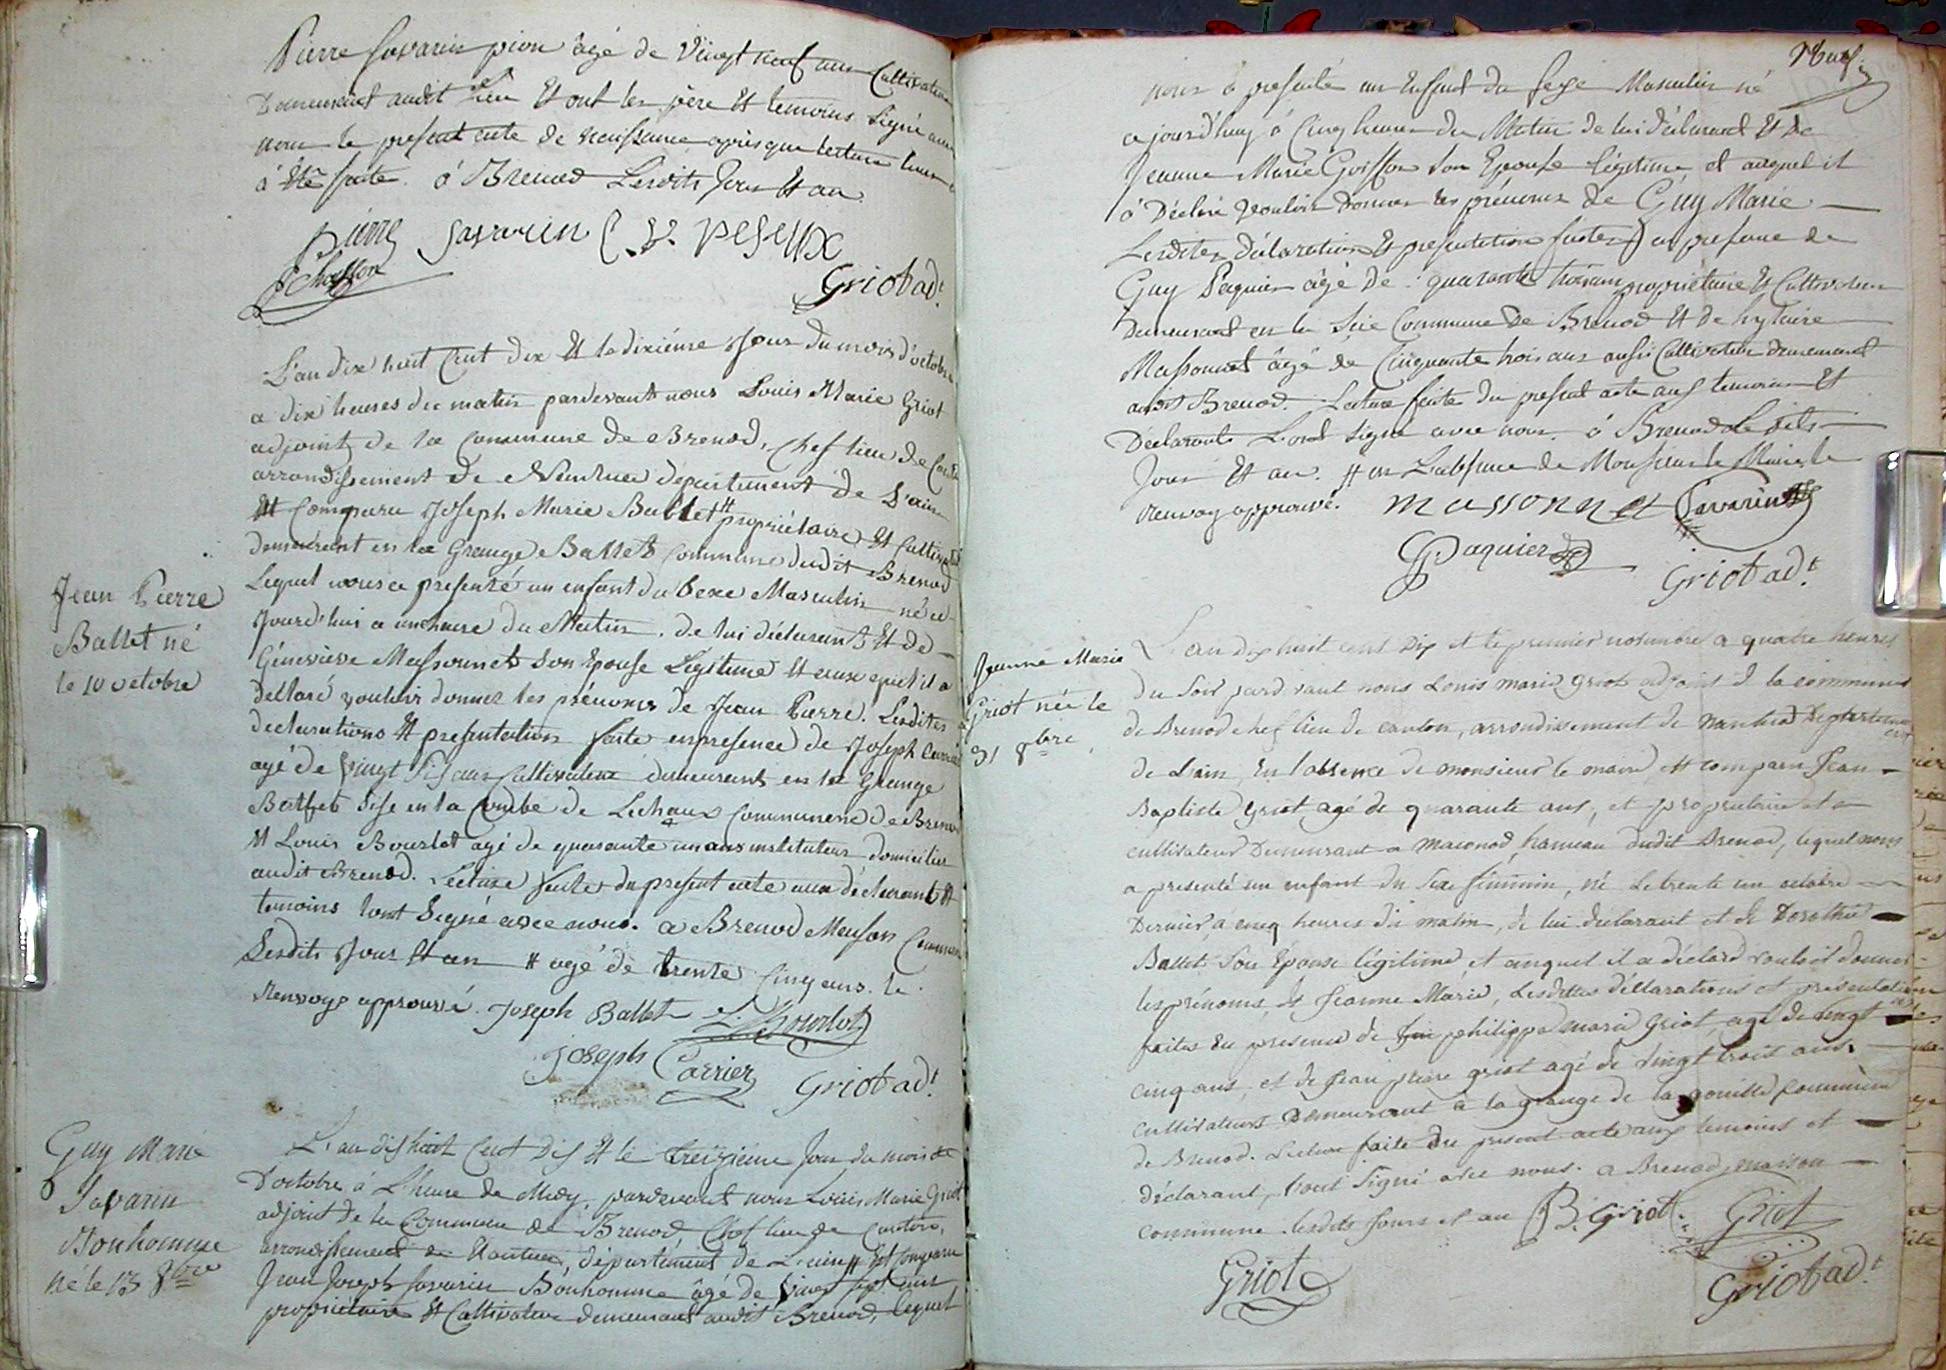 Pierre Savarin pion âgé de Vingt neuf ans Cultivateur
Demeurant audit Lieu Et ont les père Et temoins Signé avec
nous le present acte de naissance après que lecture leur
à Été faite. à Brenod Lesdits Jour Et an
pierre Savarin
Griot adt.
L'an dix huit Cent dix Et le dixiéme Jour du mois d'octobre
a dix heures du matin pardevant nous Louis Marie Griot
adjoint de la Commune de Brenod, Chef lieu de Canton
arrondissement de Nantua departement de L'ain
Est Comparu Joseph Marie Ballet # propriétaire Et Cultivateur
demeurant en la Grange Ballet Commune dudit Brenod
Lequel nous a presenté un enfant du Sexe Masculin né ce
Jourd'hui a une heure du Matin. de lui déclarant Et de
Génévieve Massonnet Son Epouse Légitime Et auquel il a
déclaré vouloir donner les prénoms de Jean Pierre. Lesdites
declarations Et presentation faite en presence de Joseph Carrier
agé de Vingt Six ans Cultivateur demeurant en la Grange
Ballet Sise en la Combe de Lechaux Commune de Brenod
Et Louis Bourlot agé de quarante un ans instituteur domicilié
audit Brenod. Lecture faite du present acte aux déclarant Et
temoins l'ont Signé avec nous. a Brenod Maison Commune
Lesdits Jour Et an # agé de trente Cinq ans. le
Renvoye approuvé. Joseph Ballet L. Bourlot
Joseph Carrier Griot adt.
Jean Pierre
Ballet né
le 10 octobre
Guy Marie
Savarin
Bonhomme
né le 13 8bre
L'an dix huit Cent dix Et le treizième Jour du mois de
D'octobre à L'heure de Midy, pardevant nous Louis Marie Griot
adjoint de la Commune de Brenod, Chef lieu de Canton,
arrondissement de Nantua, département de L'ain # Est Comparu
Jean Joseph Savarin Bonhomme âgé de Vingt Sept ans
propriétaire Et Cultivateur demeurant audit Brenod, lequel
Neuf.
nous à presenté un Enfant du Sexe Masculin né
ajourd'huy à Cinq heures du Matin de lui déclarant Et de
Jeanne Marie Goiffon Son Epouse légitime et auquel il
à Déclaré Vouloir Donner les prénoms de Guy Marie
Lesdites déclaration Et presentation faites en presence de
Guy Paquier âgé de quarante trois ans propriétaire Et Cultivateur
Demeurant en la Commune de Brenod Et de hylaire
Massonnet âgé de Cinquante trois ans aussi Cultivateur demeurant
audit Brenod. Lecture faite du present acte aux temoins Et
Déclarant L'ont Signé avec nous. à Brenod Lesdits
Jour Et an. # en L'absence de Monsieur le Maire le
Renvoy approuvé. massonnet Savarin
G Paquier
Griot adt.
Jeanne Marie
Griot née le
31 8bre
L'an dix huit cent Dix et le premier novembre a quatre heures
du Soir pardevant nous Louis marie griot adjoint de la commune
de Brenod chef lieu de canton, arrondissement de nantua departement
de L'ain, En l'absence de monsieur le maire est comparu Jean
Baptiste Griot, agé de quarante ans, et propriétaire et
cultivateur Demeurant a maconod, hameau dudit Brenod, lequel nous
a presenté un enfant du Sexe féminin, né Le trente un octobre
Dernier, à cinq heures du matin, de lui declarant et de Dorothé
Ballet Son Epouse légitime, et auquel il a déclaré vouloir donner
les prénoms de Jeanne Marie, Lesdittes déclarations et présentation
faites En presence de philippe marie Griot, agé de vingt
cinq ans, et de Jean pierre griot agé de vingt trois ans
cultivateurs Demeurant à la grange de la gouille commune
de Brenod. Lecture faite du present acte aux temoins et
déclarant, l'ont Signé avec nous. a Brenod, maison
commune. lesdits Jours et an B. Griot. Griot
Griot
Griot adt.